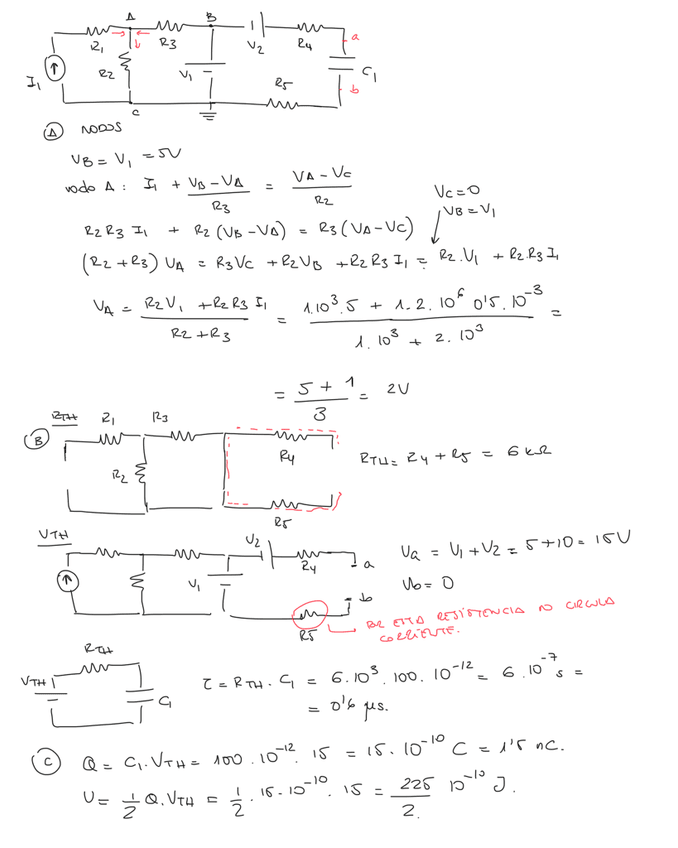 A B
R1 R3 V2 R4 a
I1 R2 V1 C1
R5 b
C
A NODOS
VB = V1 = 5V
nodo A: I1 + (VB - VA)/R3 = (VA - VC)/R2
VC = 0
VB = V1
R2 R3 I1 + R2 (VB - VA) = R3 (VA - VC)
(R2 + R3) VA = R3 VC + R2 VB + R2 R3 I1 = R2 . V1 + R2 . R3 I1
VA = (R2 V1 + R2 R3 I1)/(R2 + R3) = (1.10³.5 + 1.2.10⁶ 0'5.10⁻³)/(1.10³ + 2.10³) =
= (5 + 1)/3 = 2V
B RTH R1 R3
R2 R4 RTH = R4 + R5 = 6 kΩ
R5
VTH V2
R4 a Va = V1 + V2 = 5 + 10 = 15V
V1 b Vb = 0
R5 POR ESTA RESISTENCIA NO CIRCULA
CORRIENTE.
RTH
VTH C1 τ = RTH . C1 = 6.10³. 100. 10⁻¹² = 6. 10⁻⁷ s =
= 0'6 μs.
C Q = C1. VTH = 100 . 10⁻¹². 15 = 15. 10⁻¹⁰ C = 1'5 nC.
U = 1/2 Q. VTH = 1/2 . 15. 10⁻¹⁰. 15 = 225/2. 10⁻¹⁰ J.